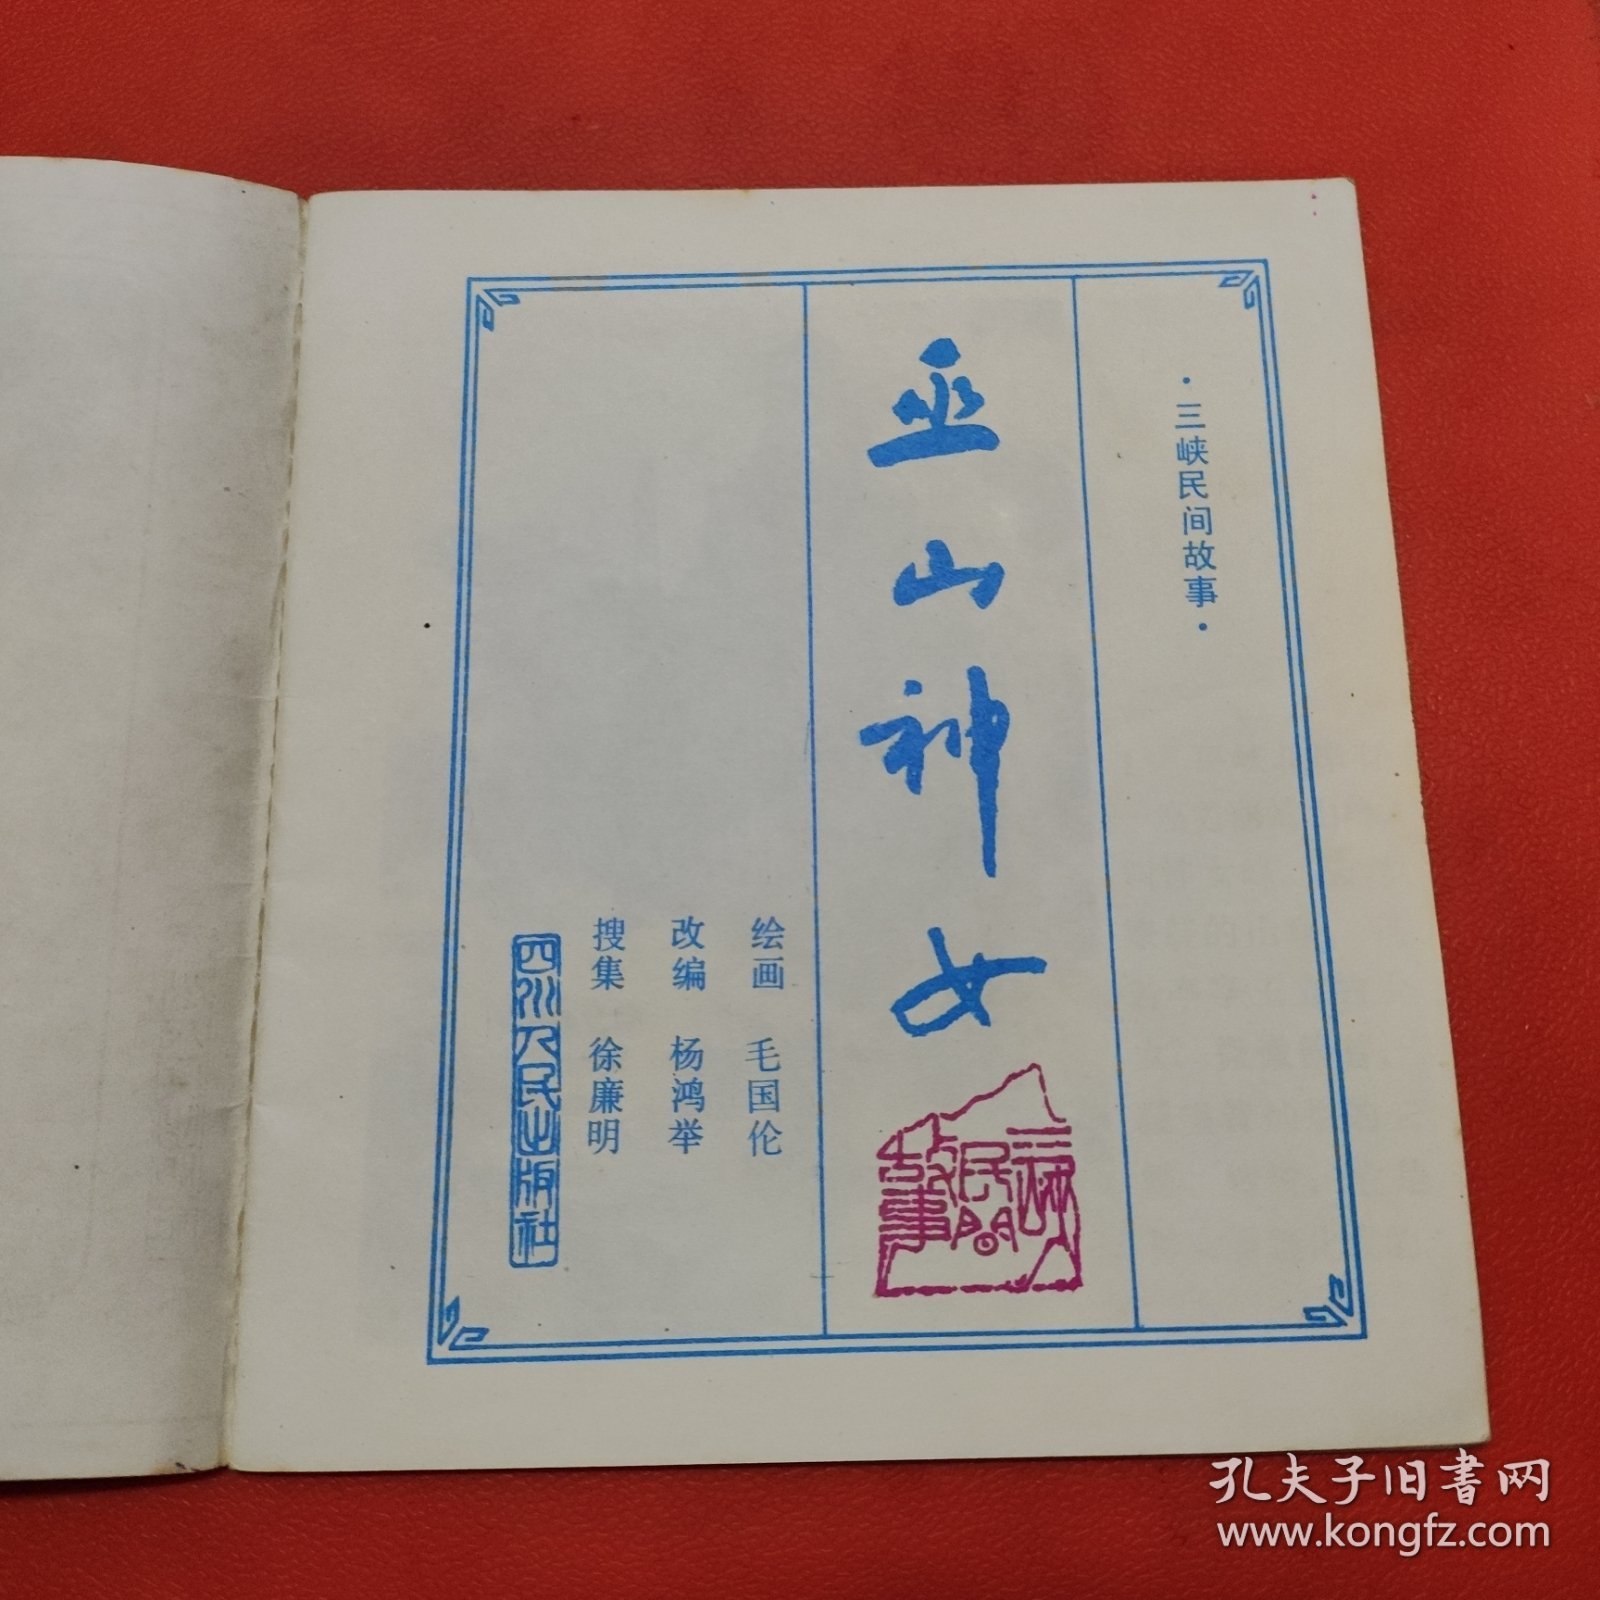 ·三峡民间故事·
巫山神女
三峡
民间
故事
绘画 毛国伦
改编 杨鸿举
搜集 徐廉明
四川人民出版社
孔夫子旧书网
www.kongfz.com